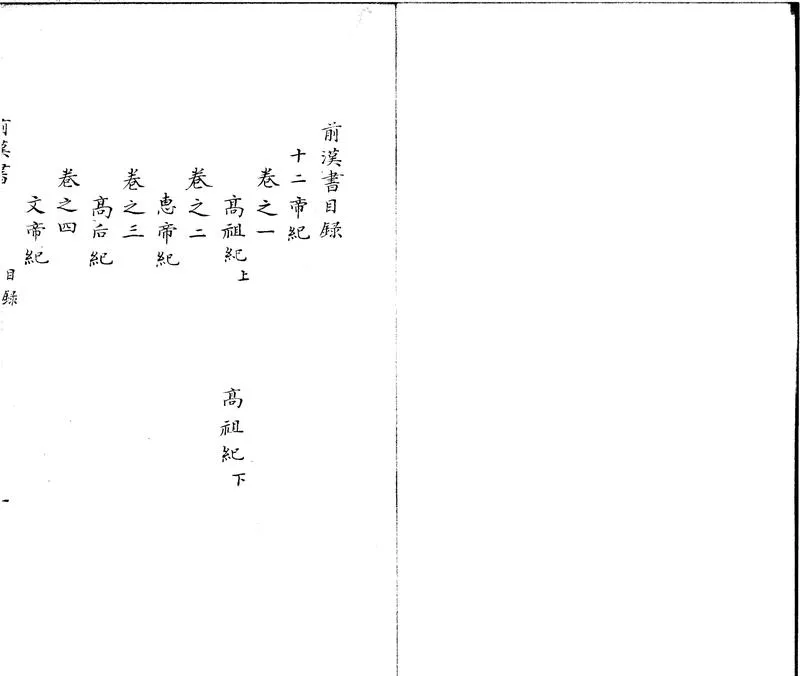 前漢書目録
十二帝紀
卷之一
髙祖紀上　髙祖紀下
卷之二
恵帝紀
卷之三
髙后紀
卷之四
文帝紀
前漢書　目録　一